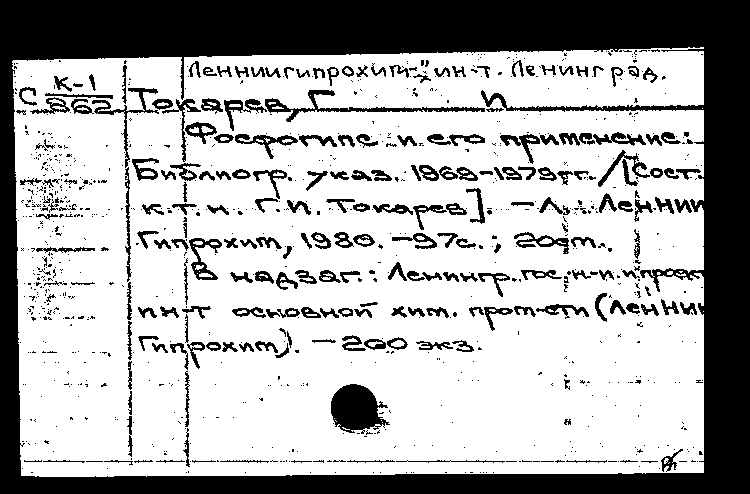 Ленниигипрохим" ин-т. Ленинград.
С К-1
862 Токарев, Г И
Фосфогипс и его применение:
Библиогр. указ. 1969-1979гг. /[Сост.
к.т.н. Г.И. Токарев]. - Л.: Ленnии
Гипрохим, 1980. - 97с.; 20см.
В надзаг.: Ленингр. гос. н-и. и проект
ин-т основной хим. пром-сти (Ленnии
Гипрохим). - 200 экз.